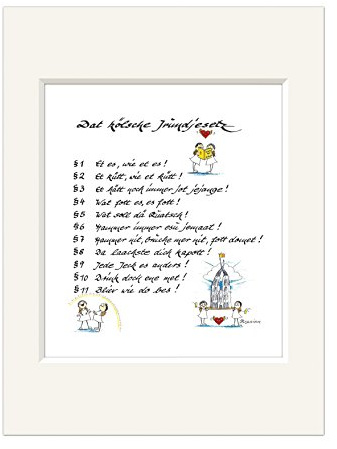 Dat kölsche Jrundjesetz
§ 1 Et es, wie et es!
§ 2 Et kütt, wie et kütt!
§ 3 Et hätt noch immer jot jejange!
§ 4 Wat fott es, es fott!
§ 5 Wat soll dä Quatsch!
§ 6 Hammer immer esu jemaat!
§ 7 Hammer nit, bruche mer nit, fott domet!
§ 8 Da laachste dich kapott!
§ 9 Jede Jeck es anders!
§ 10 Drink doch ene met!
§ 11 Bliev wie do bes!